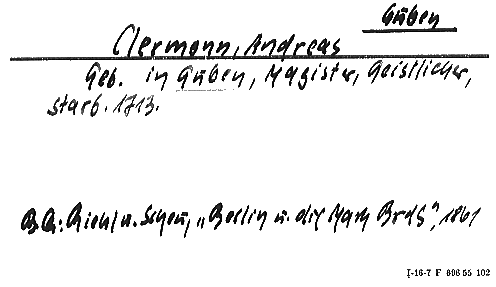 Guben
Clermann, Andreas
Geb. in Guben, Magister, Geistlicher,
starb. 1713.
B.Qu: Riehl u. Scheu, „Berlin u. die Mark Brdbg", 1861
I-16-7 F 806 55 102